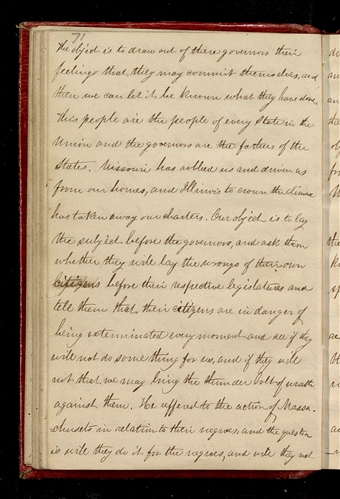 71
The object is to draw out of these governors their
feelings that they may commit themselves, and
then we can let it be known what they have done.
This people are the people of every State in the
Union and the governors are the fathers of the
States. Missouri has robbed us and driven us
from our homes, and Illinois to crown the climax
has taken away our charters. Our object is to lay
the subject before the governors, and ask them
whether they will lay the wrongs of their own
citizens before their respective legislatures and
tell them that their citizens are in danger of
being exterminated every moment and see if they
will not do something for us, and if they will
not that we may bring the thunder bolt of wrath
against them. He referred to the action of Massa-
chusets in relation to their negroes, and the question
is will they do it for the negroes, and will they not